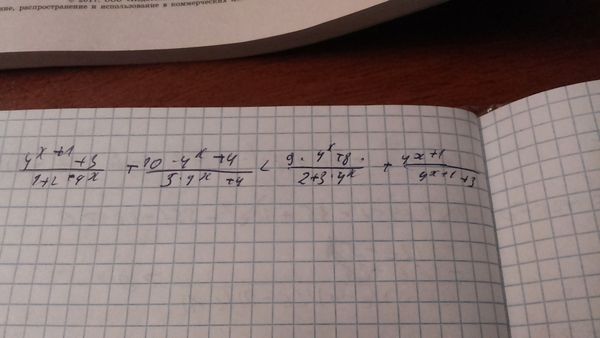 © 2017, ООО
распространение и использование в коммерческих
4^x+1 +3 / 1+2·4^x + 10·4^x+4 / 3·4^x+4 < 9·4^x+8 / 2+3·4^x + 4^x+1 / 4^x+1+3